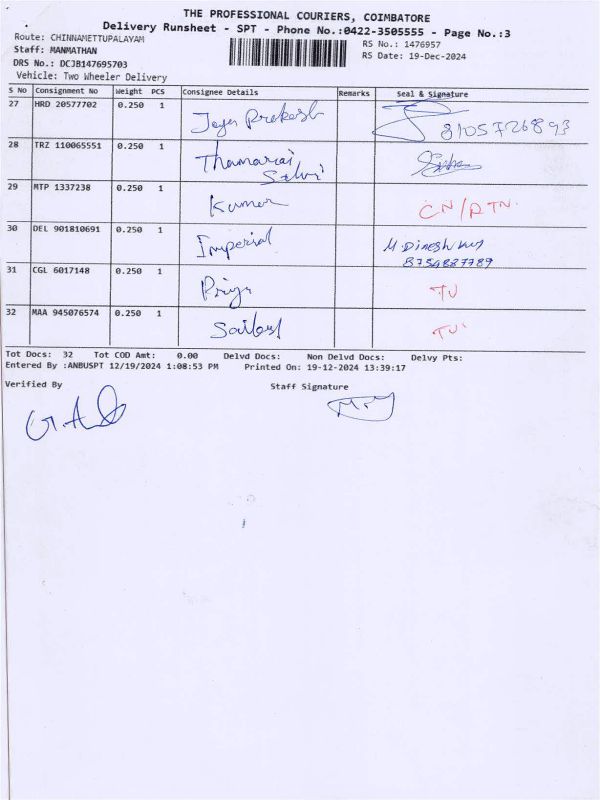 THE PROFESSIONAL COURIERS, COIMBATORE
Delivery Runsheet - SPT - Phone No.:0422-3505555 - Page No.:3
Route: CHINNAMETTUPALAYAM
RS No.: 1476957
Staff: MANMATHAN
RS Date: 19-Dec-2024
DRS No.: DCJB147695703
Vehicle: Two Wheeler Delivery
S No Consignment No Weight PCS Consignee Details Remarks Seal & Signature
27 HRD 20577702 0.250 1 Prakash 8105726893
28 TRZ 110065551 0.250 1 Thamarai
Selvi
29 MTP 1337238 0.250 1 Kumar CN/RTN.
30 DEL 901810691 0.250 1 Imperial M. Dinesh
8754887789
31 CGL 6017148 0.250 1 Priya TU
32 MAA 945076574 0.250 1 TU
Tot Docs: 32 Tot COD Amt: 0.00 Delvd Docs: Non Delvd Docs: Delvy Pts:
Entered By :ANBUSPT 12/19/2024 1:08:53 PM Printed On: 19-12-2024 13:39:17
Verified By
Staff Signature